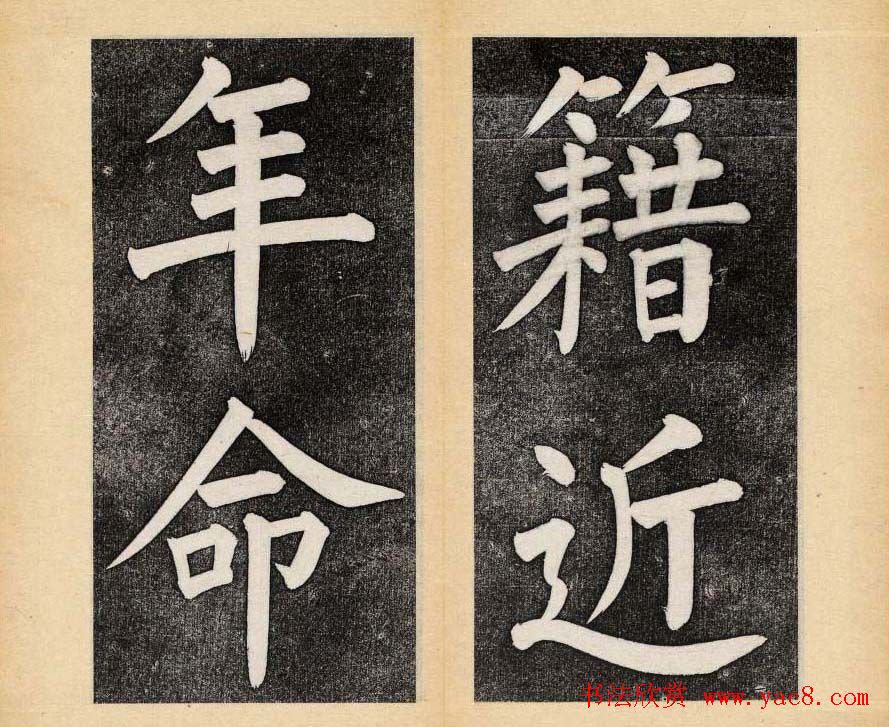 籍近
年命
书法欣赏 www.yac8.com